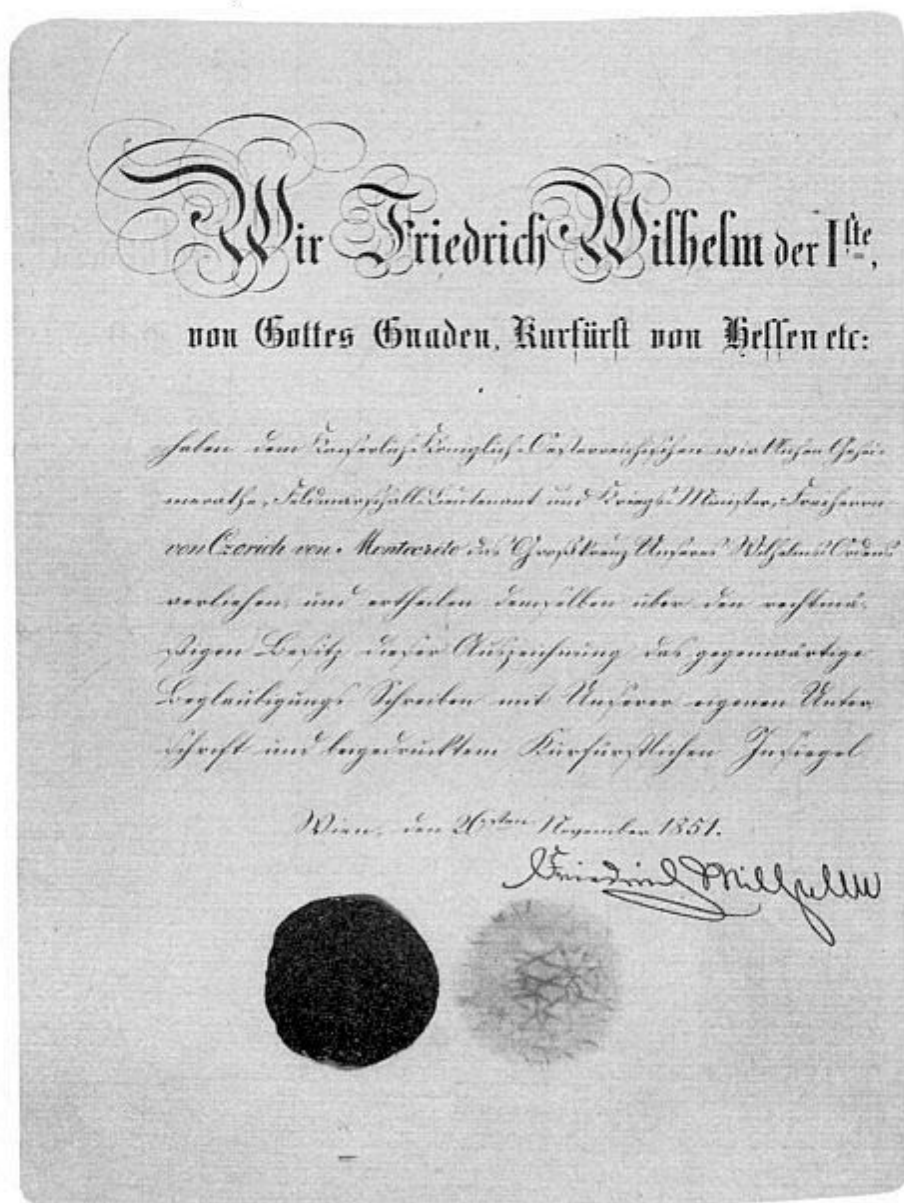 Wir Friedrich Wilhelm der Iste,
von Gottes Gnaden, Kurfürst von Hessen etc:
haben dem Kaiserlich-Königlich-Oesterreichischen wirklichen Gehei-
menrathe, Feldmarschall-Lieutenant und Kriegs-Minister, Freiherrn
von Czorich von Montecreto das Großkreuz Unseres Wilhelms-Ordens
verliehen, und ertheilen demselben über den rechtmä-
ßigen Besitz dieser Auszeichnung das gegenwärtige
Beglaubigungs Schreiben mit Unserer eigenen Unter
schrift und beigedrucktem Kurfürstlichen Insiegel
Wien, den 26sten November 1851.
Friedrich Wilhelm